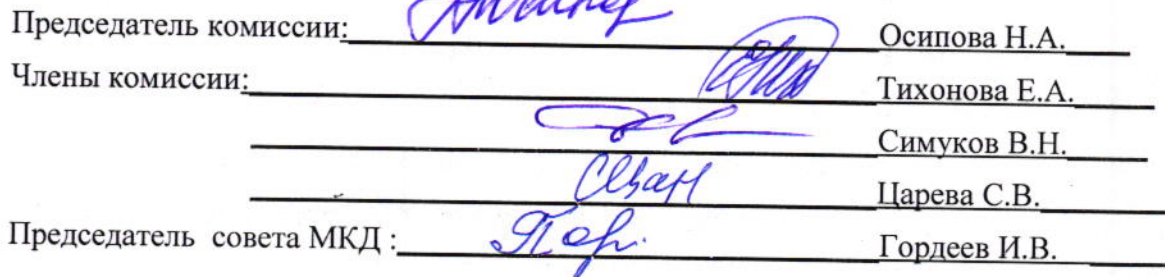 Председатель комиссии: Осипова Н.А.
Члены комиссии: Тихонова Е.А.
Симуков В.Н.
Царева С.В.
Председатель совета МКД : Гордеев И.В.